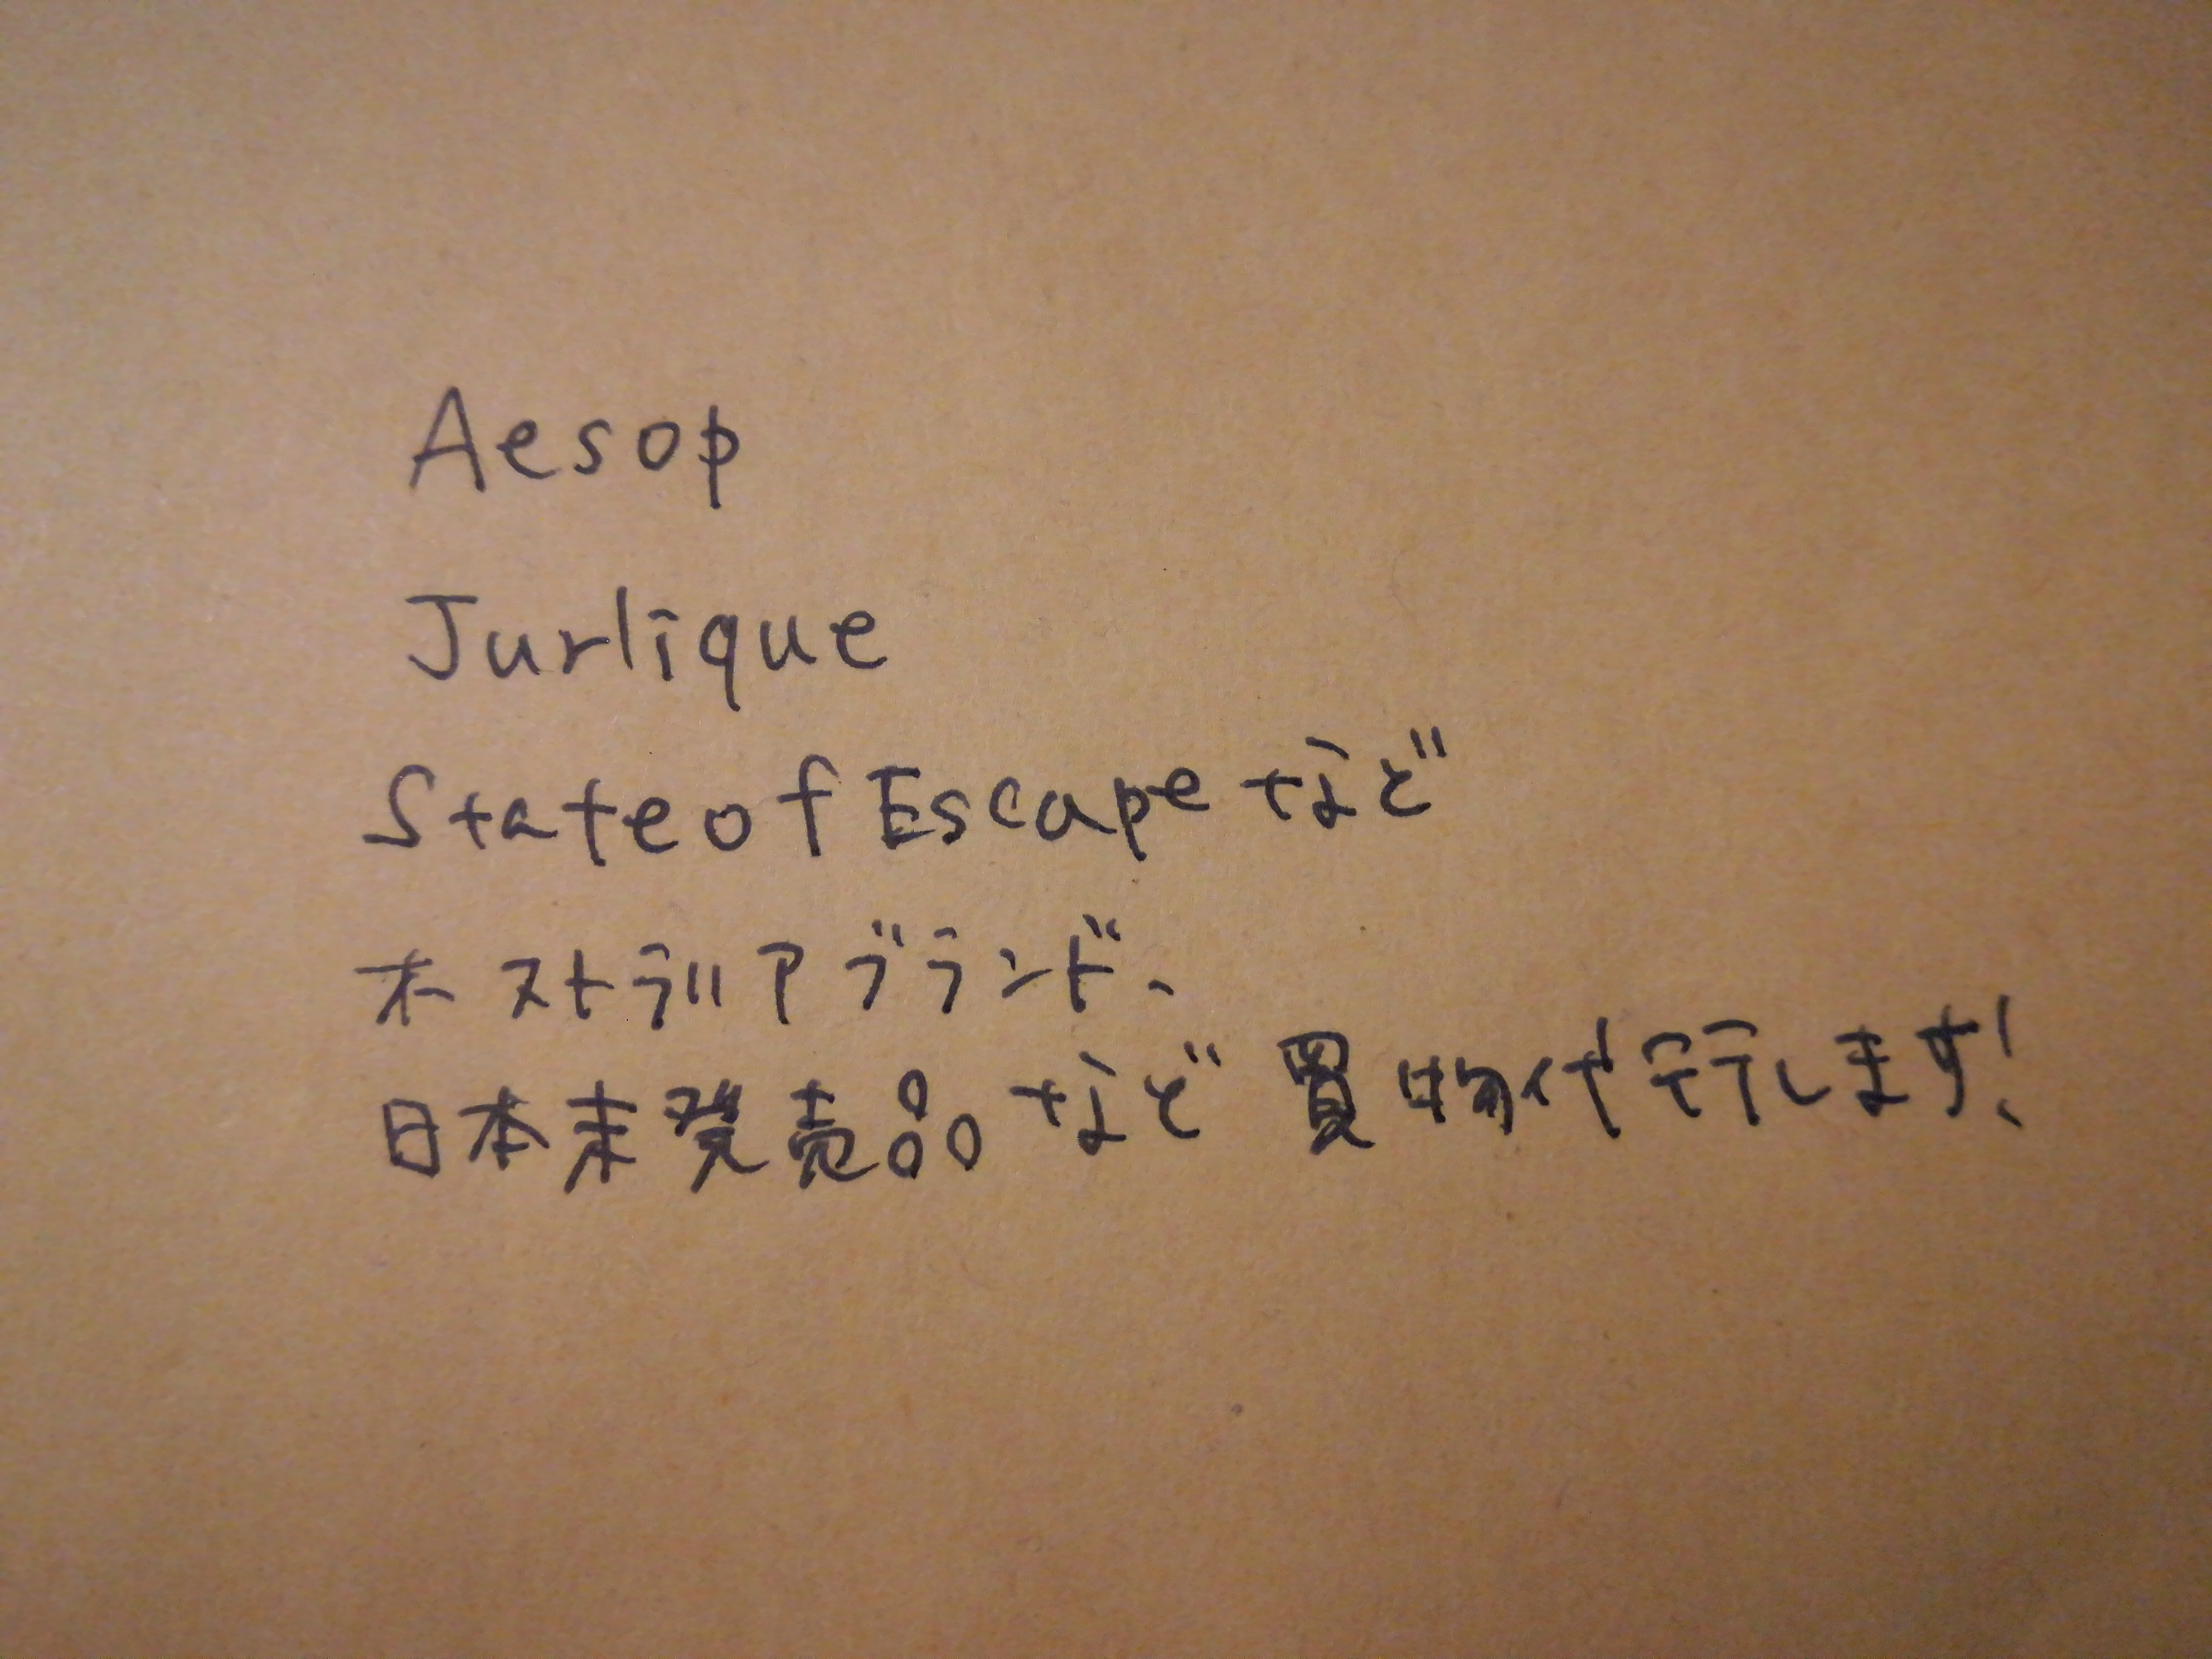 Aesop
Jurlique
State of Escape など
オーストラリアブランド、
日本未発売品など買物代行します!